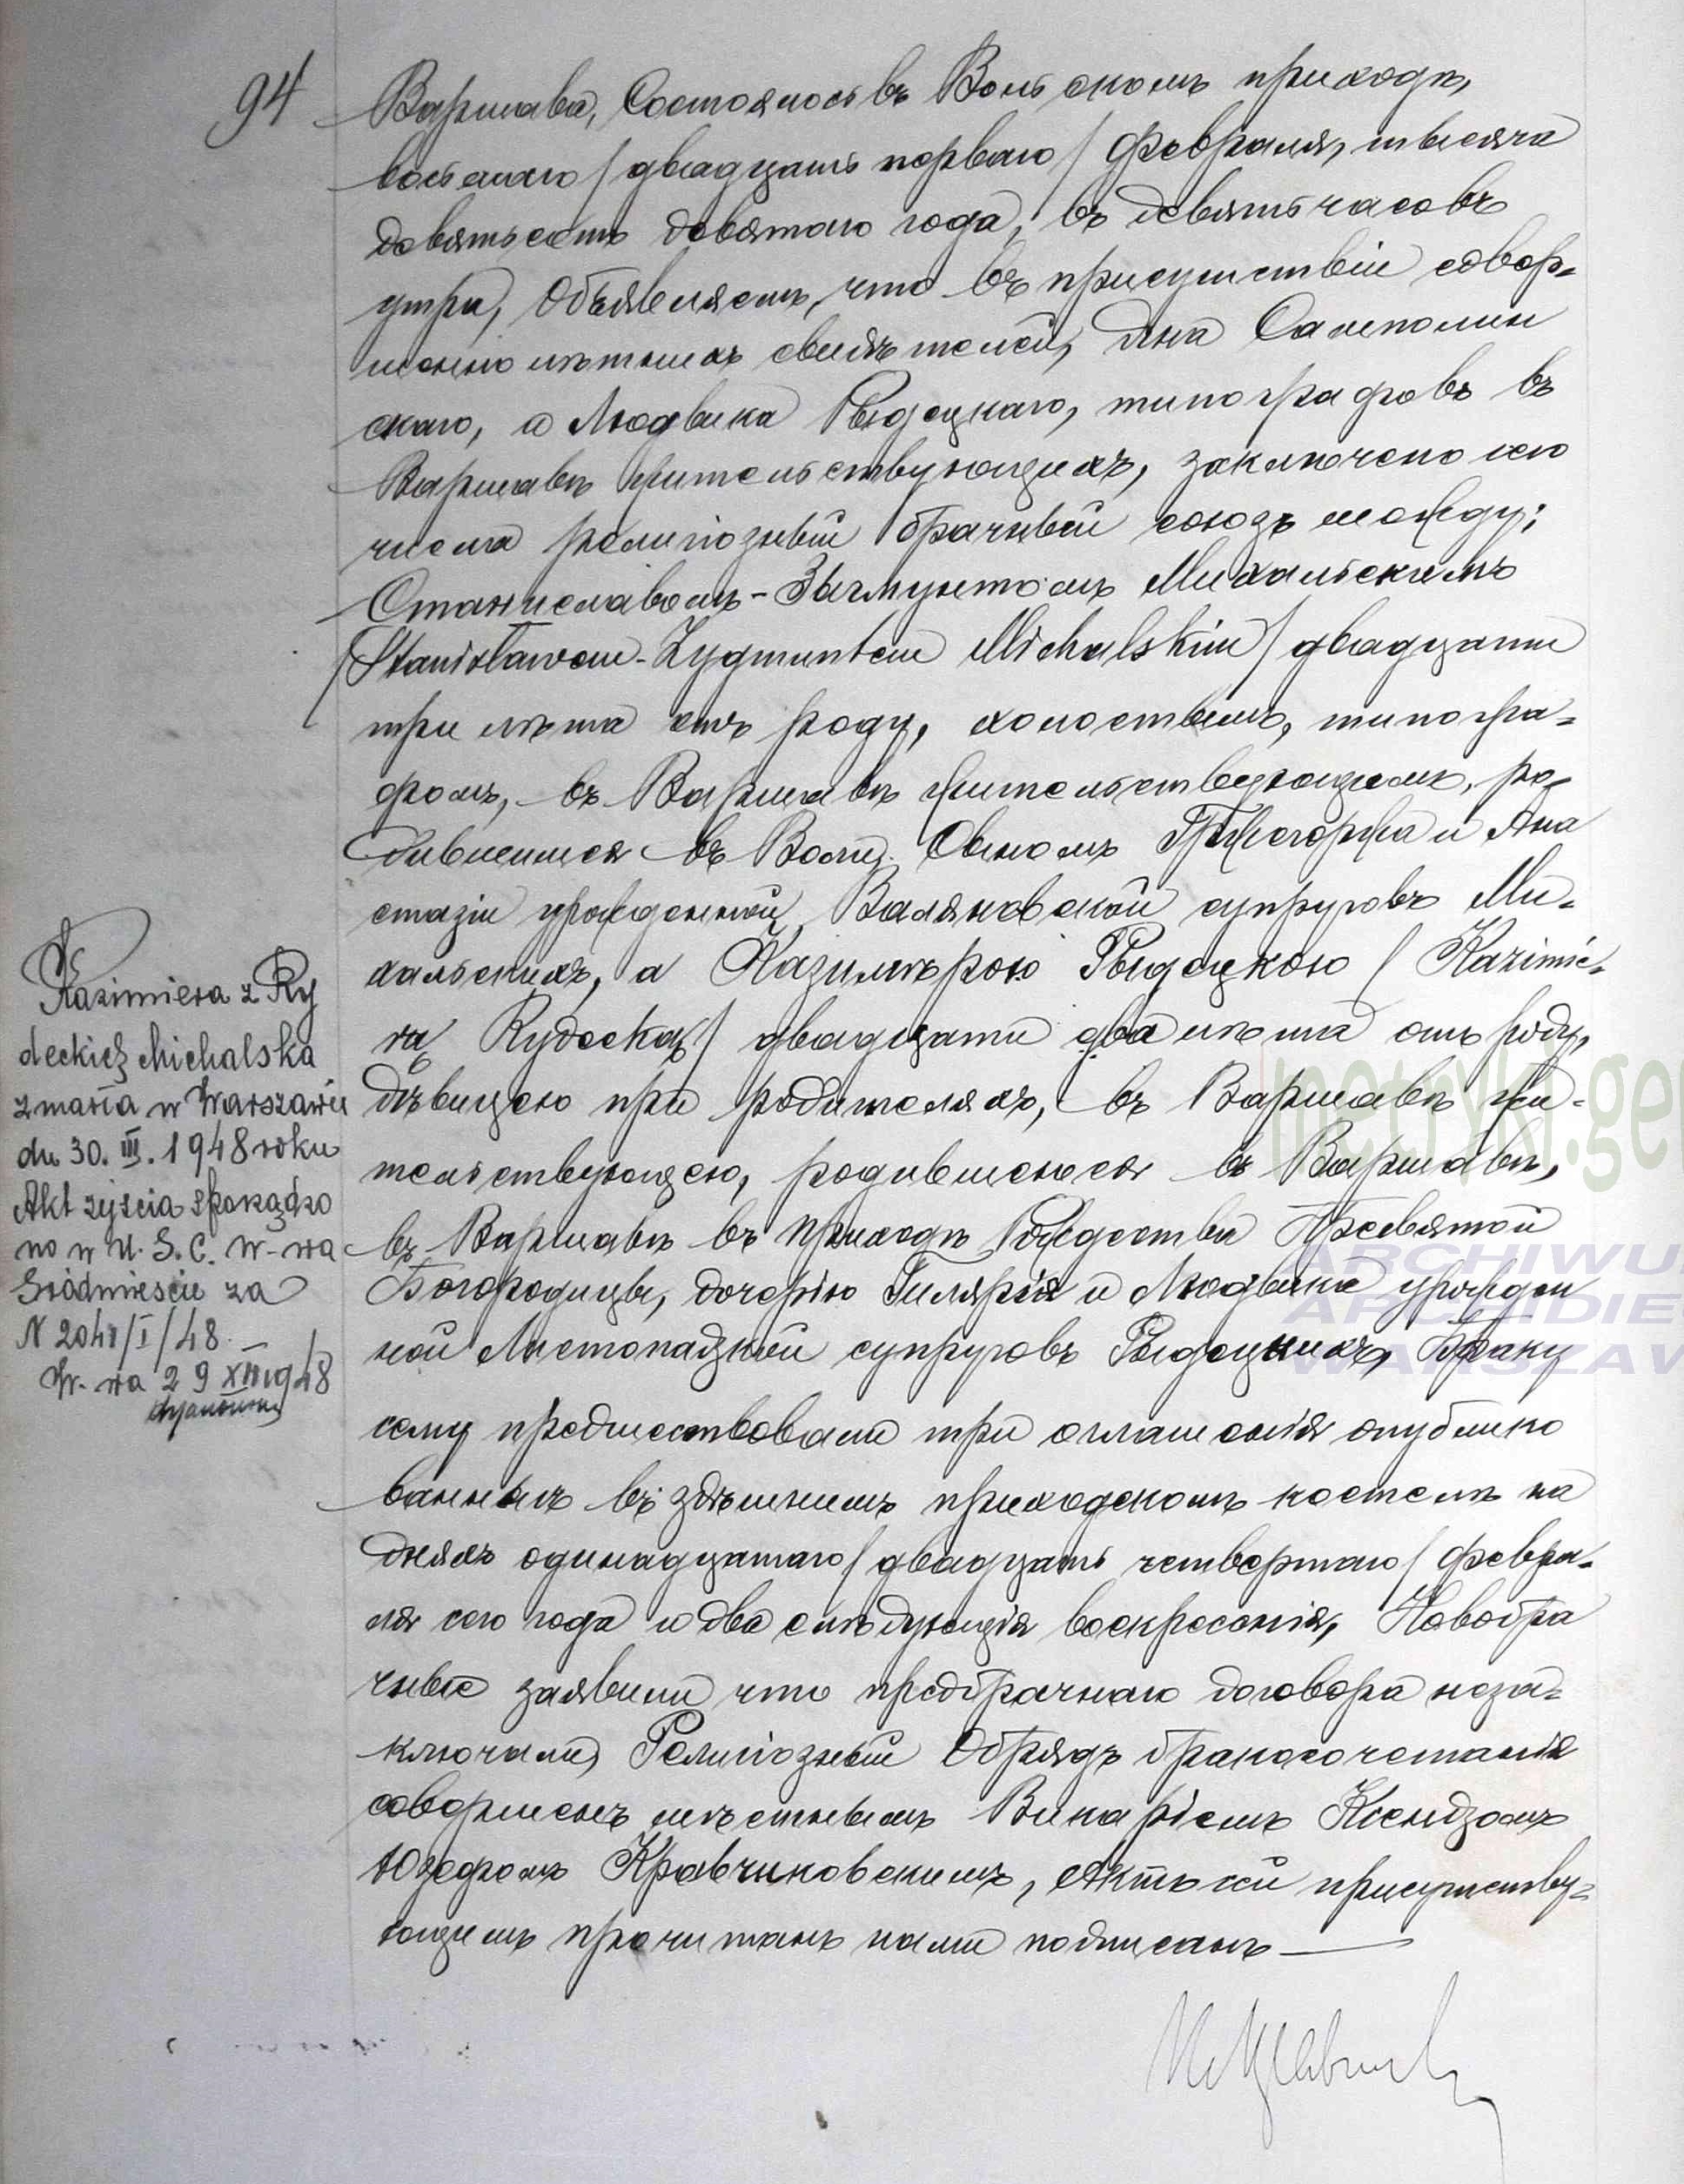 94
Варшава, Состоялось въ Вольскомъ приходѣ,
восьмаго / двадцать перваго / февраля, тысяча
девятьсотъ девятаго года, въ девять часовъ
утра, Объявляемъ, что въ присутствіи совер-
шеннолѣтныхъ свидѣтелей, Яна Самполин
скаго, и Людвика Рыдецкаго, типографовъ въ
Варшавѣ жительствующихъ, заключено сего
числа религіозный брачный союзъ между;
Станиславомъ-Зыгмунтомъ Михальскимъ
/Stanisławem-Zygmuntem Michalskim/ двадцати
три лѣта отъ роду, холостымъ, типогра-
фомъ, въ Варшавѣ жительствующимъ, ро-
дившимся въ Воли. Сыномъ Гржегоржа и Ана
стазіи урожденной Валяновской супруговъ Ми-
хальскихъ, а Казимѣрою Рыдецкою / Kazimie-
rą Rydecką / двадцати два лѣта отъ роду,
дѣвицею при родителяхъ, въ Варшавѣ жи-
тельствующею, родившеюся въ Варшавѣ,
въ Варшавѣ въ приходѣ Рождества Пресвятой
Богородицы, дочерію Гилярія и Людвики урожден
ной Листопадзкой супруговъ Рыдецкихъ, Браку
сему предшествовали три оглашенія опублико
ванныхъ въ здѣшнемъ приходскомъ костелѣ на
дняхъ одинадцатаго / двадцать четвертаго / февра-
ля сего года и два слѣдующія воскресенія, Новобра
чные заявили что предбрачнаго договора неза-
ключали, Религіозный Обрядъ бракосочетанія
совершенъ мѣстнымъ Викаріемъ Ксендзомъ
Юзефомъ Кравчиковскимъ, Актъ сей присутству-
ющимъ прочитанъ нами подписанъ
Kazimiera z Ry
deckich Michalska
zmarła w Warszawie
dn 30. III. 1948 roku
Akt zejścia sporządzo
no w U. S. C. W-wa
Śródmieście za
N 2041/I/48.
W-wa 29 XII 1948
metryki.ge
ARCHIWU
ARCHIDIE
WARSZAW